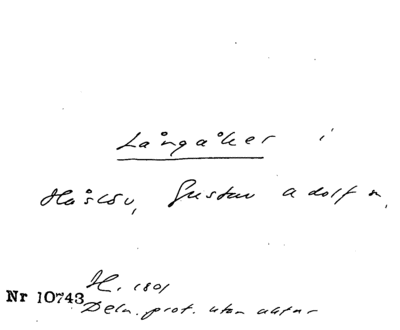 Långåker i
Håslöv, Gustav Adolf n,
H. 1801
Nr 10743
Deln. prot. utan aktnr